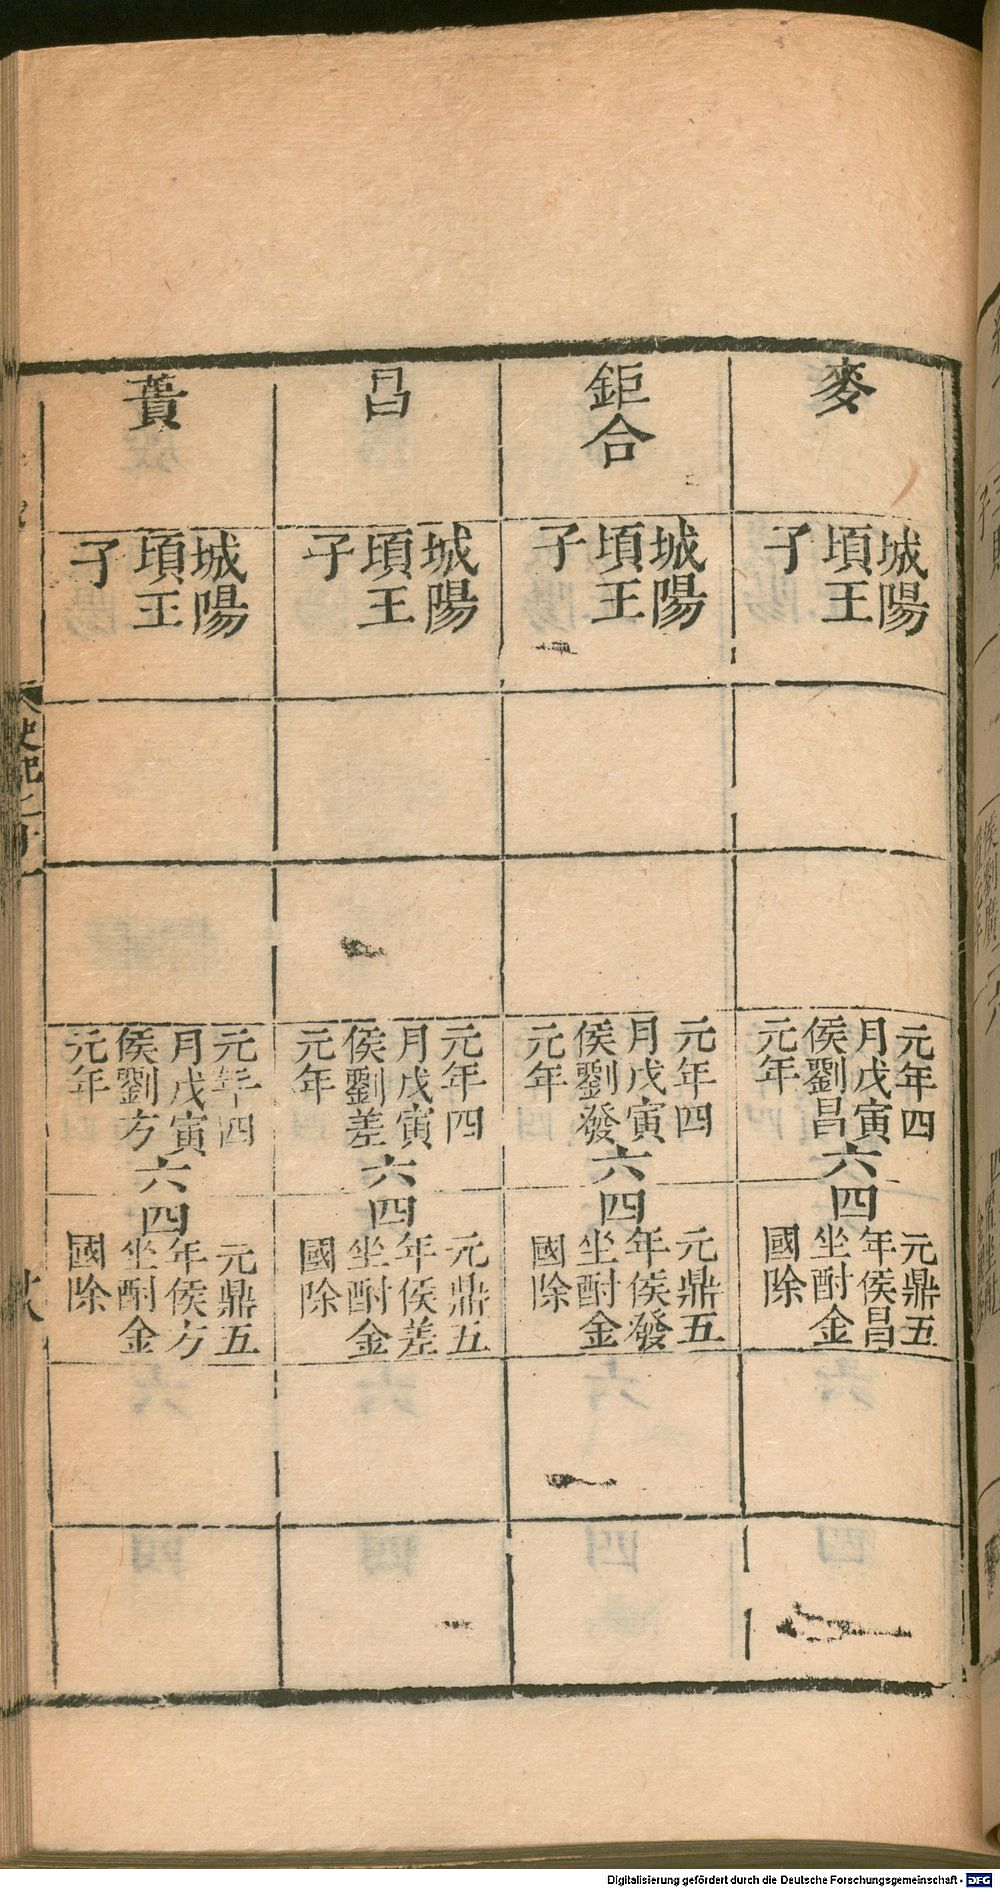 麥
城陽
頃王
子
元年四
月戊寅
侯劉昌
元年
六
四
元鼎五
年侯昌
坐酎金
國除
鉅合
城陽
頃王
子
元年四
月戊寅
侯劉發
元年
六
四
元鼎五
年侯發
坐酎金
國除
昌
城陽
頃王
子
元年四
月戊寅
侯劉差
元年
六
四
元鼎五
年侯差
坐酎金
國除
蕢
城陽
頃王
子
元年四
月戊寅
侯劉方
元年
六
四
元鼎五
年侯方
坐酎金
國除
史記
Digitalisierung gefördert durch die Deutsche Forschungsgemeinschaft - DFG